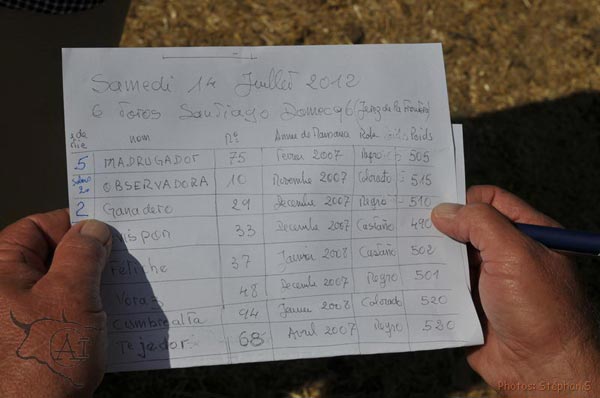 Samedi 14 Juillet 2012
6 Toros Santiago Domecq (Jerez de la Frontera)
nom N° Annee de Naissance Robe Poids
5 MADRUGADOR 75 Fevrier 2007 Negro 505
Sobrero 2e OBSERVADORA 10 Novembre 2007 Colorado 515
2 Ganadero 29 Decembre 2007 Negro 510
vispon 33 Decembre 2007 Castaño 490
Feliche 37 Janvier 2008 Castaño 502
Voraz 48 Decembre 2007 Negro 501
Cumbrealta 94 Janvier 2008 Colorado 520
Tejedor 68 Avril 2007 Negro 520
CAI
Photos: Stéphan S